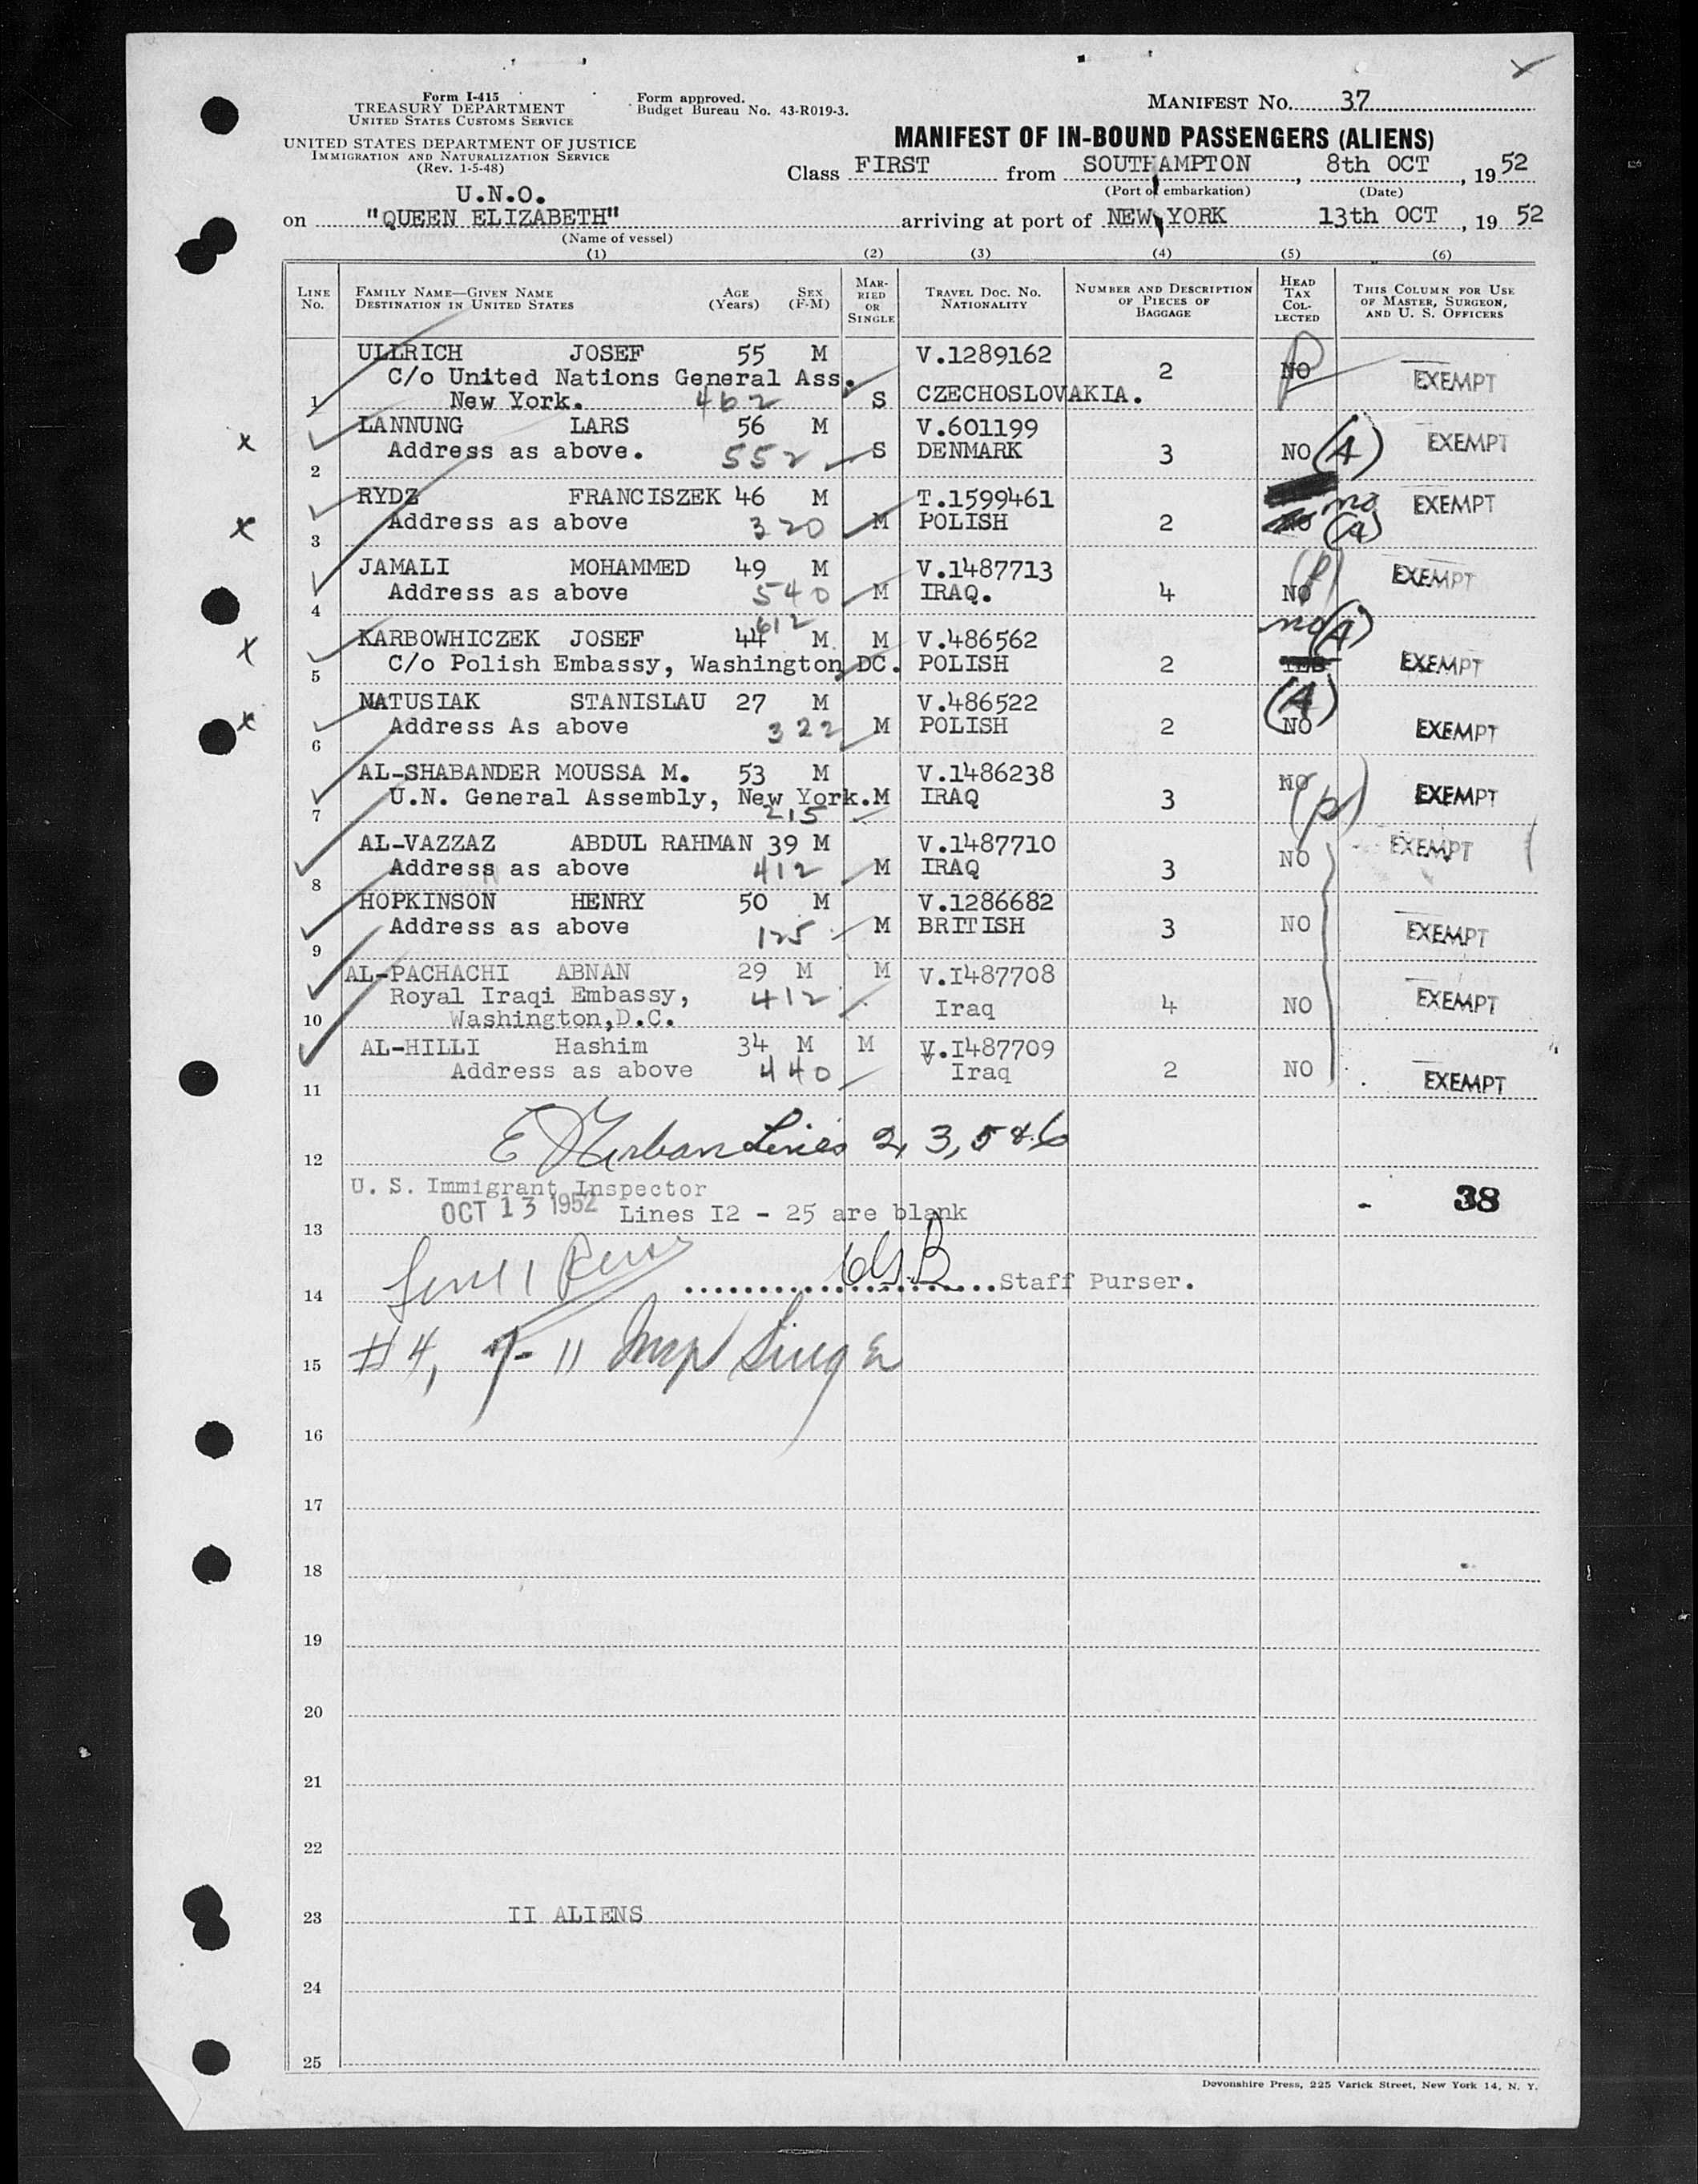 Form I-415
TREASURY DEPARTMENT
UNITED STATES CUSTOMS SERVICE
UNITED STATES DEPARTMENT OF JUSTICE
IMMIGRATION AND NATURALIZATION SERVICE
(Rev. 1-5-48)
Form approved.
Budget Bureau No. 43-R019-3.
MANIFEST No. 37
MANIFEST OF IN-BOUND PASSENGERS (ALIENS)
Class FIRST from SOUTHAMPTON, 8th OCT, 1952
(Port of embarkation) (Date)
U.N.O.
on "QUEEN ELIZABETH" arriving at port of NEW YORK 13th OCT, 1952
(Name of vessel)
(1) (2) (3) (4) (5) (6)
LINE No. FAMILY NAME—GIVEN NAME DESTINATION IN UNITED STATES AGE (Years) SEX (F-M) MARRIED OR SINGLE TRAVEL DOC. NO. NATIONALITY NUMBER AND DESCRIPTION OF PIECES OF BAGGAGE HEAD TAX COLLECTED THIS COLUMN FOR USE OF MASTER, SURGEON, AND U. S. OFFICERS
ULLRICH JOSEF 55 M V.1289162
C/o United Nations General Ass. 2 NO EXEMPT
1 New York. 462 S CZECHOSLOVAKIA.
LANNUNG LARS 56 M V.601199
x 2 Address as above. 552 S DENMARK 3 NO (A) EXEMPT
RYDZ FRANCISZEK 46 M T.1599461 no EXEMPT
x 3 Address as above 320 M POLISH 2 NO (A)
JAMALI MOHAMMED 49 M V.1487713 (P) EXEMPT
4 Address as above 540 M IRAQ. 4 NO
612 no (A)
KARBOWHICZEK JOSEF 44 M M V.486562
x 5 C/o Polish Embassy, Washington DC. POLISH 2 YES EXEMPT
MATUSIAK STANISLAU 27 M V.486522 (A)
x 6 Address As above 322 M POLISH 2 NO EXEMPT
AL-SHABANDER MOUSSA M. 53 M V.1486238 NO
7 U.N. General Assembly, New York. M IRAQ 3 (P) EXEMPT
215
AL-VAZZAZ ABDUL RAHMAN 39 M V.1487710 NO EXEMPT
8 Address as above 412 M IRAQ 3
HOPKINSON HENRY 50 M V.1286682
9 Address as above 125 M BRITISH 3 NO EXEMPT
AL-PACHACHI ABNAN 29 M M V.I487708
Royal Iraqi Embassy, 412 Iraq 4 NO EXEMPT
10 Washington,D.C.
AL-HILLI Hashim 34 M M V.I487709
Address as above 440 Iraq 2 NO EXEMPT
11
12 Lines 2, 3, 5 & 6
U. S. Immigrant Inspector
OCT 13 1952 Lines I2 - 25 are blank - 38
13
14 Staff Purser.
15 #4, 7-11
16
17
18
19
20
21
22
23 II ALIENS
24
25
Devonshire Press, 225 Varick Street, New York 14, N. Y.